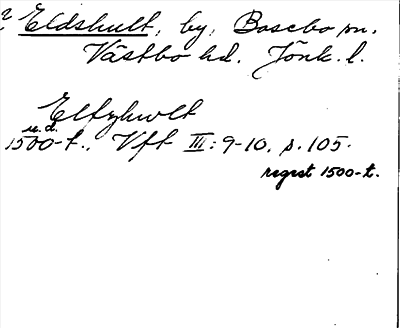 ? Eldshult, by, Bosebo sn.
Västbo hd. Jönk. l.
Eltzhwlt
u.d.
1500-t., Vft III: 9-10, s. 105.
regest 1500-t.